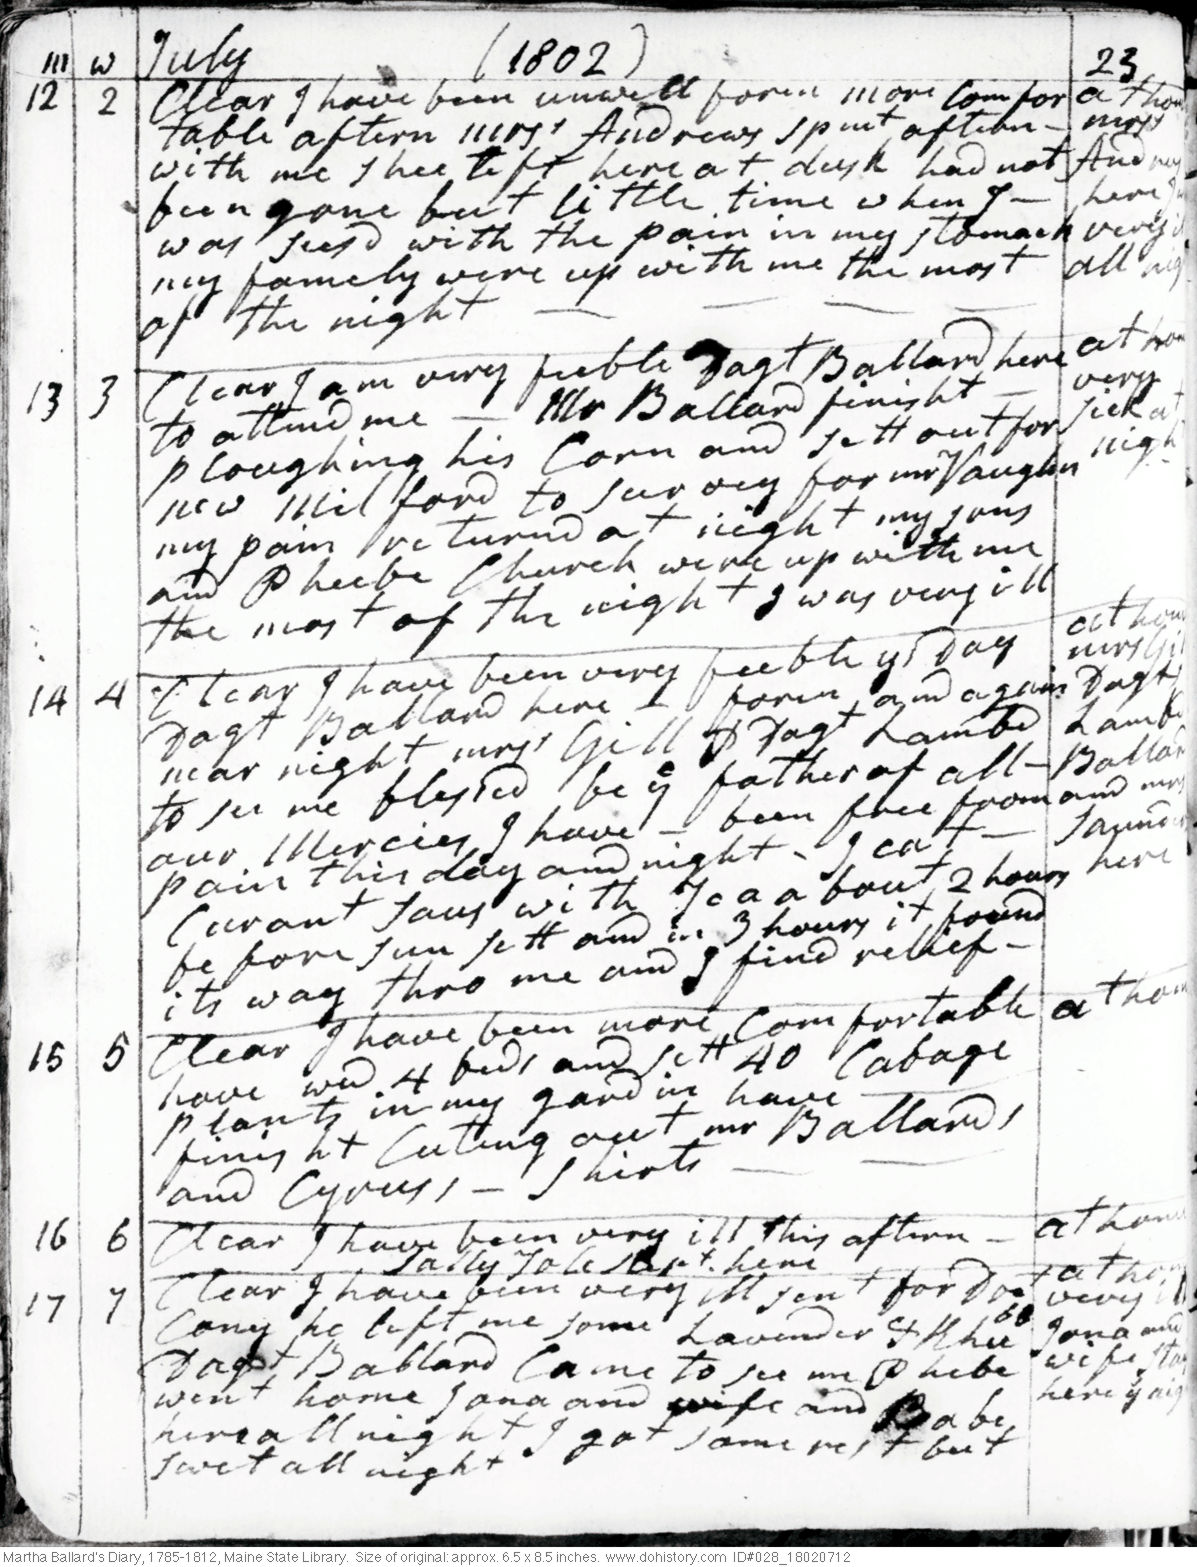 m w July (1802) 23
12 2 Clear I have been unwell foren more Comfor
table aftern mrss Andrews spent aftern -
with me shee left here at dusk had not
been gone but little time when I -
was seesd with the pain in my stomach
my famely were up with me the most
of the night
at hom
mrss
And
here I
very i
all nig
13 3 Clear I am very feeble Dagt Ballard here
to attend me - Mr Ballard finisht -
ploughing his Corn and sett out for
new Milford to survey for mr Vaughn
my pain returnd at night my sons
and Pheebe Church were up with me
the most of the night I was very ill
at hom
very
sick at
nigh
14 4 Clear I have been very feeble ys Day
Dagt Ballard here - foren and again
near night mrss Gill & Dagt Lambd
to see me blessed be ye father of all -
our Mercies I have - been free from
pain this day and night - I eat -
Curant saus with Tea about 2 hours
before sun sett and in 3 hours it found
its way thro me and I find relief -
at hom
mrs Gi
Dagts
Lamb
Ballar
and mrs
Saund
here
15 5 Clear I have been more Comfortable
have wed 4 beds and sett 40 Cabage
plants in my gardin have
finisht Cuting out mr Ballards
and Cyruss - shirts
at hom
16 6 Clear I have been very ill this aftern -
Sally here
at home
17 7 Clear I have been very ill sent for Doct
Cony he left me some Lavender & Rhubb
Dagt Ballard Came to see me Phebe
went home Jona and wife and Babe
here all night I got some rest but
swet all night
at hom
very ill
Jona and
wife stay
here ye nig
Martha Ballard's Diary, 1785-1812, Maine State Library. Size of original: approx. 6.5 x 8.5 inches. www.dohistory.com ID#028_18020712